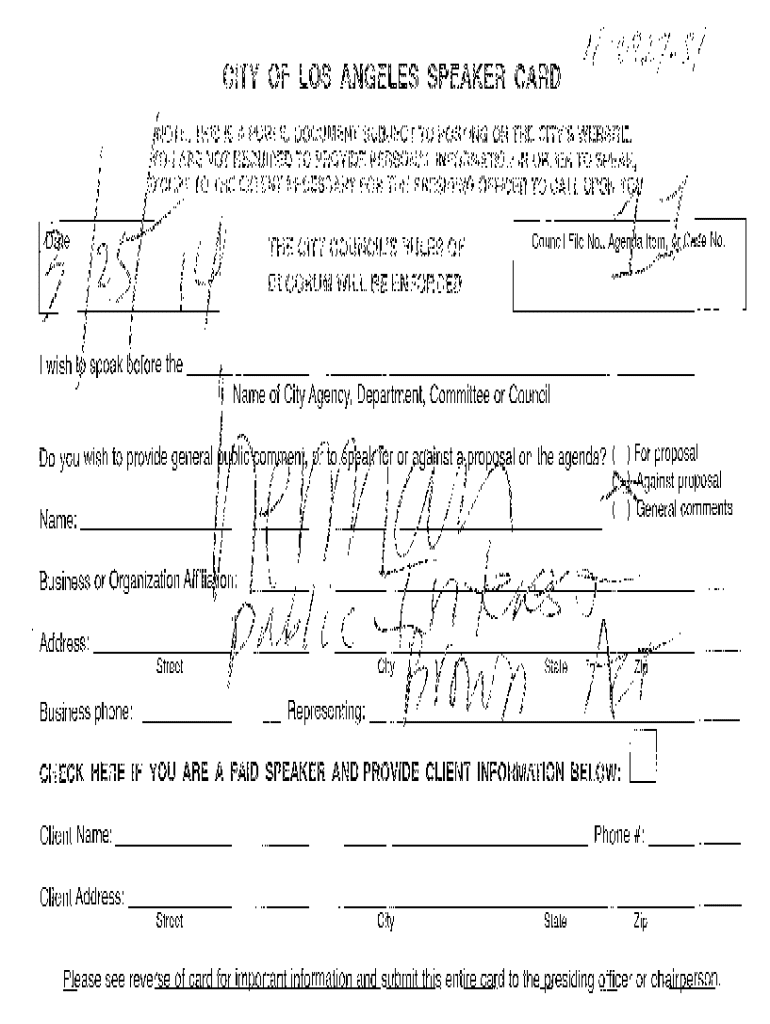 CITY OF LOS ANGELES SPEAKER CARD
NOTE: THIS IS A PUBLIC DOCUMENT SUBJECT TO POSTING ON THE CITY'S WEBSITE.
YOU ARE NOT REQUIRED TO PROVIDE PERSONAL INFORMATION IN ORDER TO SPEAK,
EXCEPT TO THE EXTENT NECESSARY FOR THE PRESIDING OFFICER TO CALL UPON YOU
Date
THE CITY COUNCIL'S RULES OF
Council File No., Agenda Item, or Case No.
25 14
DECORUM WILL BE ENFORCED
I wish to speak before the
Name of City Agency, Department, Committee or Council
Do you wish to provide general public comment, or to speak for or against a proposal on the agenda? ( ) For proposal
( ) Against proposal
Name: Herman ( ) General comments
Business or Organization Affiliation:
Public
Address:
Street City State Zip
Business phone: Representing:
CHECK HERE IF YOU ARE A PAID SPEAKER AND PROVIDE CLIENT INFORMATION BELOW:
Client Name: Phone #:
Client Address:
Street City State Zip
Please see reverse of card for important information and submit this entire card to the presiding officer or chairperson.